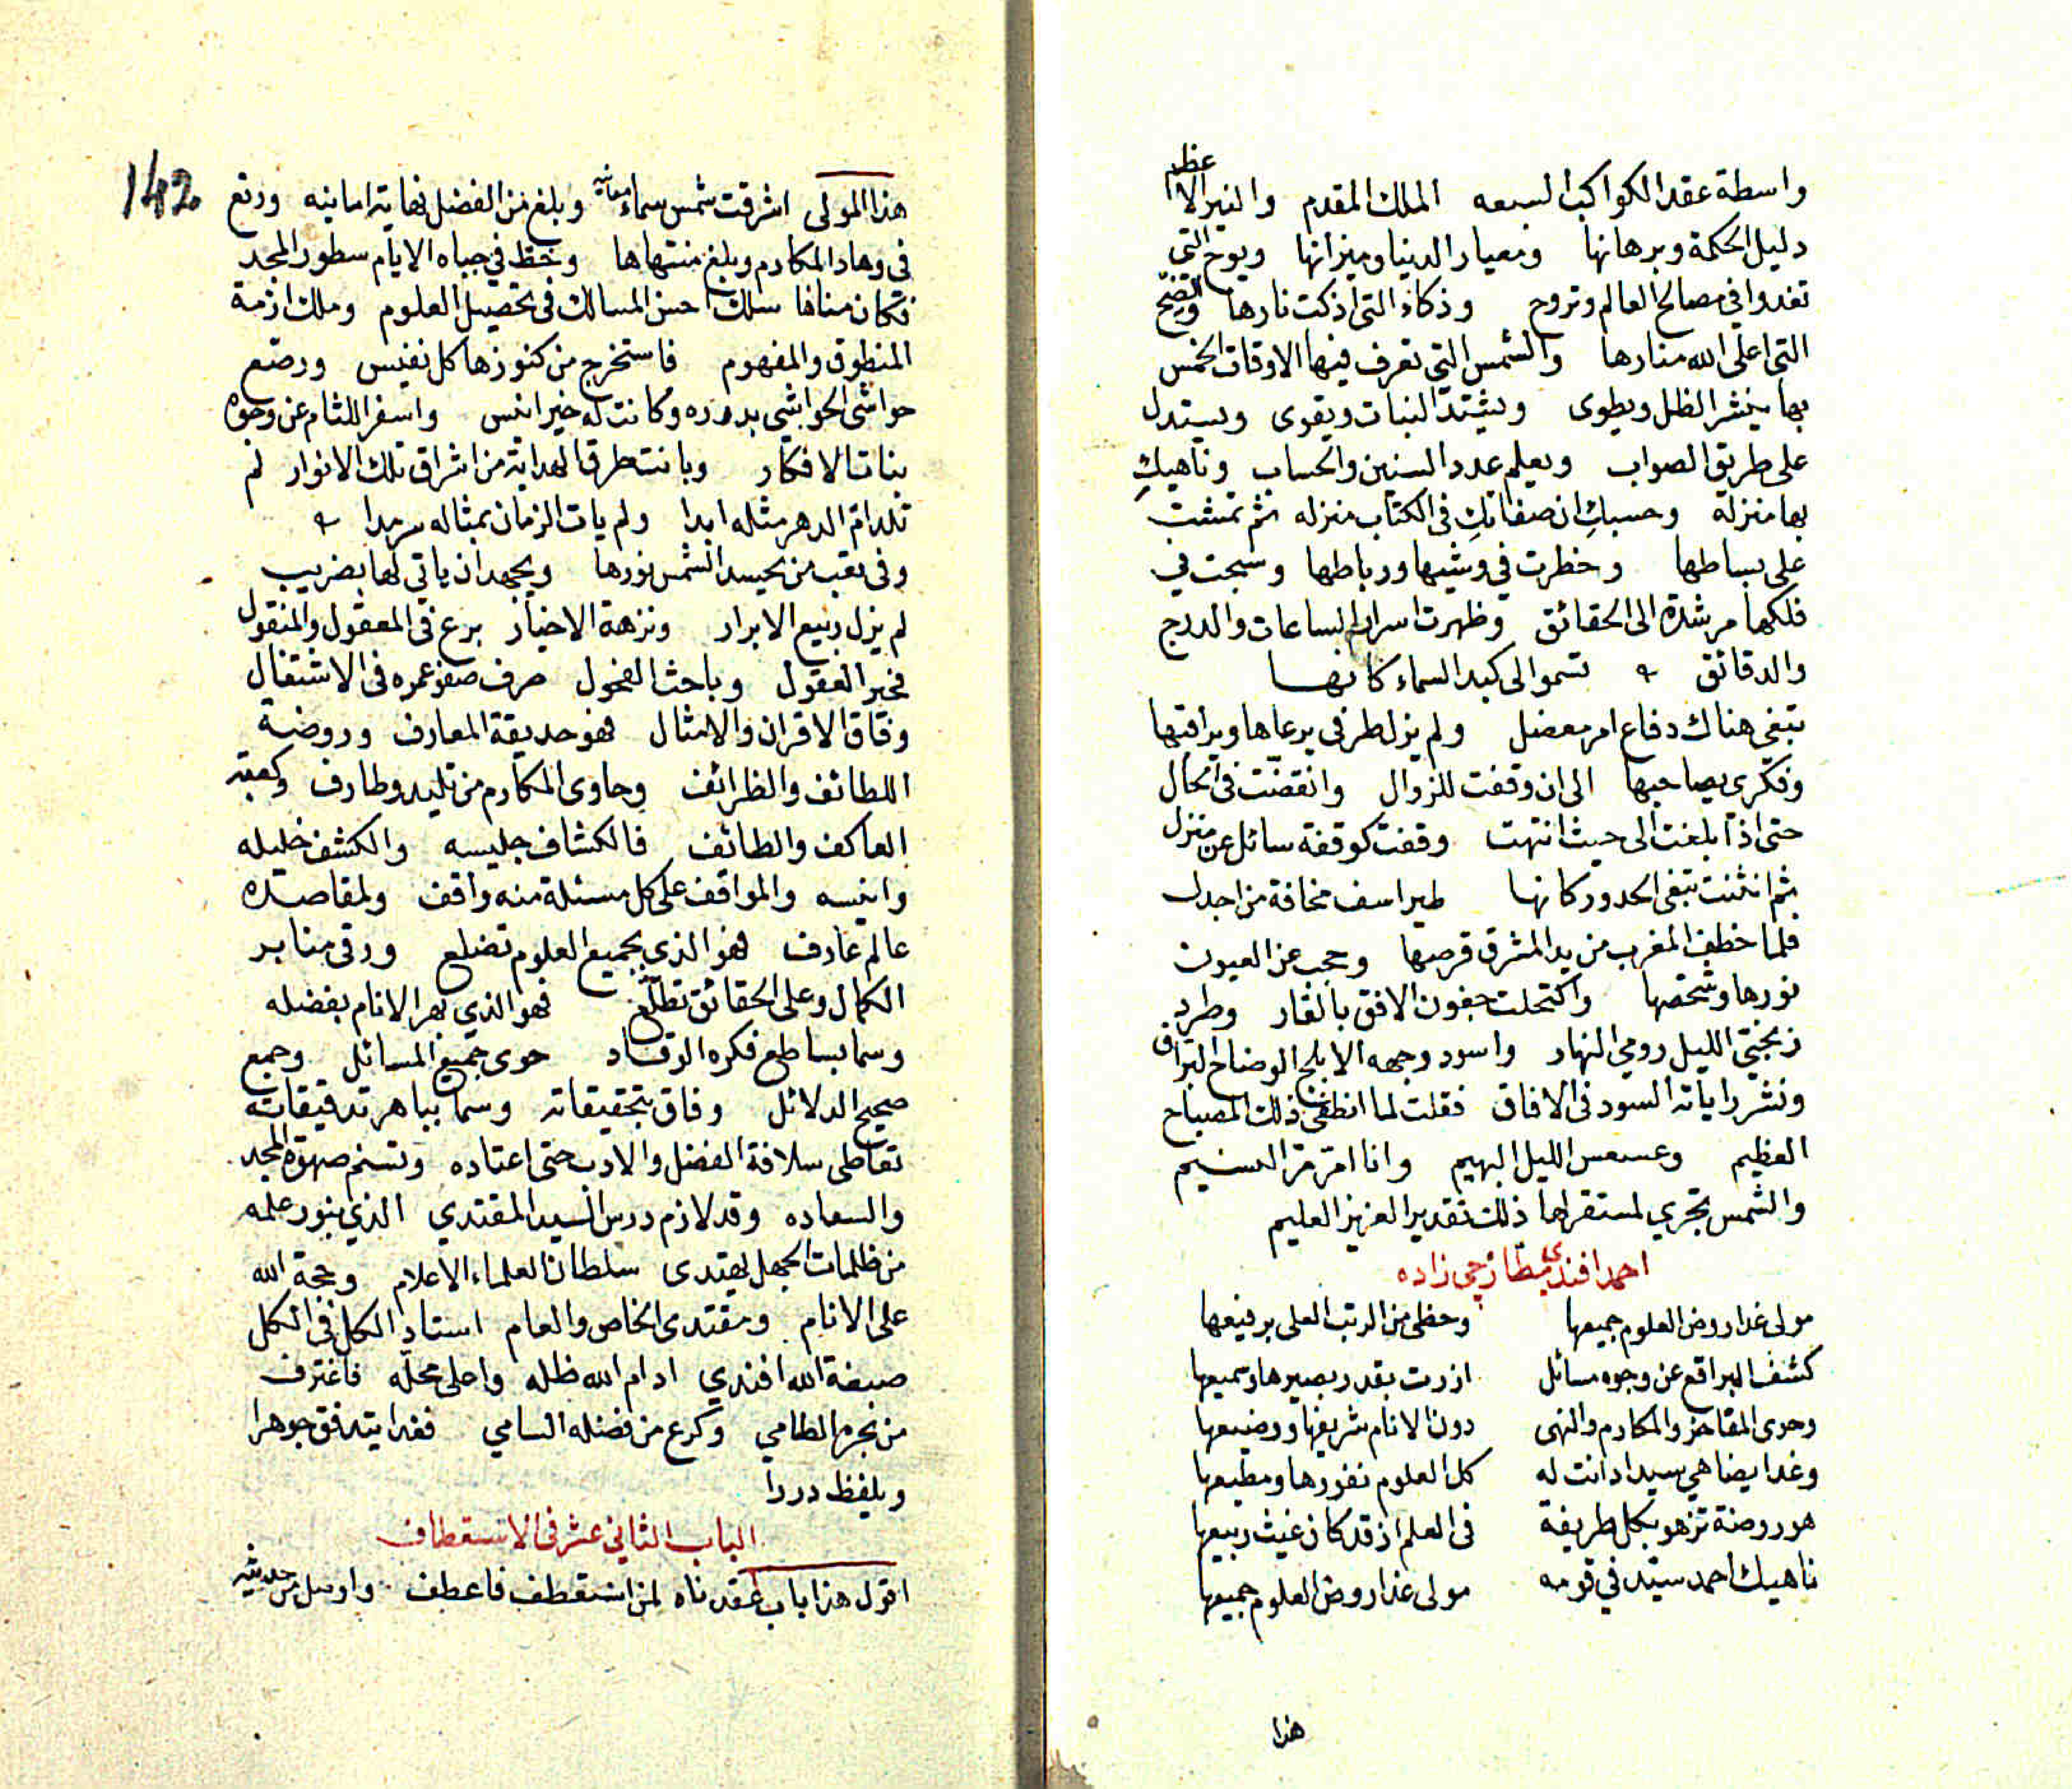 واسطة عقد الكواكب السبعه الملك المقدم والنير الاعظم
دليل الحكمة وبرهانها ومعيار الدنيا وميزانها ويوح التي
تغدوا في مصالح العالم وتروح وذكاء التي اذكت نارها والضح
التي اعلى الله منارها والشمس التي تعرف فيها الاوقات الخمس
بها ينشر الظل ويطوى ويشتد النبات ويقوى ويستدل
على طريق الصواب ويعلم عدد السنين والحساب وناهيكِ
بها منزلة وحسبكِ ان صفاتكِ في الكتاب منزله ثم تمشت
على بساطها وخطرت في وشيها ورباطها وسبحت في
فلكها مرشدة الى الحقائق وظهرت اسرار الساعات والدرج
والدقائق تسموا لى كبد السماء كانها
تبغى هناك دفاع امر معضل ولم يزل طرفي يرعاها ويراقبها
وفكرى يصاحبها الى ان وقفت للزوال وانقضت في الحال
حتى اذا بلغت الى حيث انتهت وقفت كوقفة سائل عن منزل
ثم انثنت تبغى الحدور كانها طير اسف مخافة من اجدل
فلما خطف المغرب من يد المشرق قرصها وحجب عن العيون
نورها وشخصها واكتحلت جفون الافق بالقار وطرد
زنجيّ الليل رومي النهار واسود وجهه الابلج الوضاح البراق
ونشر راياته السود في الافاق فقلت لما انطفئ ذلك المصباح
العظيم وعسعس الليل البهيم وانا امرّ مرّ النسيم
والشمس تجري لمستقر لها ذلك تقدير العزيز العليم
احمد افندي مطارجى زاده
مولى غدا روض العلوم جميعها وحظى من الرتب العلى برفيعها
كشف البراقع عن وجوه مسائل ازرت بقدر بصيرها وسميعها
وحوى المفاخر والمكارم والنهى دون الانام شريفها ووضيعها
وغدا يضاهي سيدا دانت له كل العلوم نفورها ومطيعها
هو روضة تزهو بكل طريفة في العلم اذ قد كان غيث ربيعها
ناهيك احمد سيّد في قومه مولى غدا روض العلوم جميعها
هذا
142
هذا المولى اشرقت شمس سماء معانيه وبلغ من الفضل نهاية امانيه ورتع
في وهاد المكارم وبلغ منتهاها وخط في جباه الايام سطور المجد
فكان مناها سلك احسن المسالك في تحصيل العلوم وملك ازمة
المنطوق والمفهوم فاستخرج من كنوزها كل نفيس ورصّع
حواشى الحواشي بدرره وكانت له خير انيس واسفر اللثام عن وجوه
بنات الافكار وبانت طرق الهداية من اشراق تلك الانوار لم
تلد ام الدهر مثله ابدا ولم يات الزمان بمثاله سرمدا
وفي تعب من يحسد الشمس نورها ويجهد ان ياتي لها بضريب
لم يزل ربيع الابرار ونزهة الاخيار برع في المعقول والمنقول
فحير العقول وباحث الفحول صرف صفو عمره في الاشتغال
وفاق الاقران والامثال فهو حديقة المعارف وروضة
اللطائف والظرائف وحاوى المكارم من تليد وطارف وكعبة
العاكف والطائف فالكشاف جليسه والكشف خليله
وانيسه والمواقف على كل مسئلة منه واقف ولمقاصده
عالم عارف فهو الذي بجميع العلوم تضلع ورقى منابر
الكمال وعلى الحقائق تطلّع فهو الذي بهر الانام بفضله
وسما بساطع فكره الوقاد حوى جميع المسائل وجمع
صحيح الدلائل وفاق بتحقيقاته وسما بباهر تدقيقاته
تعاطى سلافة الفضل والادب حتى اعتاده وتسنم صهوة المجد
والسعاده وقد لازم درس السيد المقتدي الذي بنور علمه
من ظلمات الجهل يهتدى سلطان العلماء الاعلام وحجة الله
على الانام ومقتدى الخاص والعام استاد الكل في الكل
صبغة الله افندي ادام الله ظله واعلى محله فاغترف
من بحره الطامي وكرع من فضله السامي فغدا يتدفق جوهرا
ويلفظ دررا
الباب الثاني عشر في الاستعطاف
اقول هذا باب عقدناه لمن استعطف فاعطف وارسل من حديثه